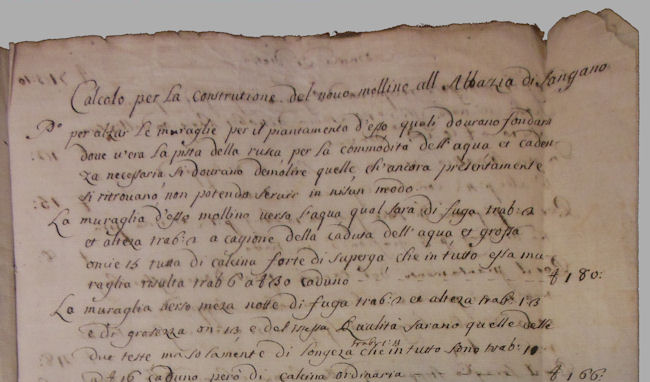 Calcolo per la construtione del novo molline all Abbazia di Sangano
P° per alzar le muraglie per il piantamento d'esso quali dourano fondarsi
doue v'era la pista della rusca per la commodità dell'aqua et caden
za necessaria si dourano demolire quelle ch'ancora presentemente
si ritrouano non potendo seruir in nisun modo
La muraglia d'esso mollino verso l'aqua qual sarà di fuga trab: 2
et alteza trab: 2 a cagione della caduta dell'aqua et grossa
oncie 15 tutta di calcina forte di Superga che in tutto essa mu
raglia risulta trab 6 a £ 30 caduno £ 180:
La muraglia verso meza notte di fuga trab: 2 et alteza trab: 1:3
e di grosezza on: 13 e dell'istessa qualità sarano quelle delle
due teste ma solamente di longeza che in tutto sono trab: 10
a £ 16 caduno però di calcina ordinaria £ 166: